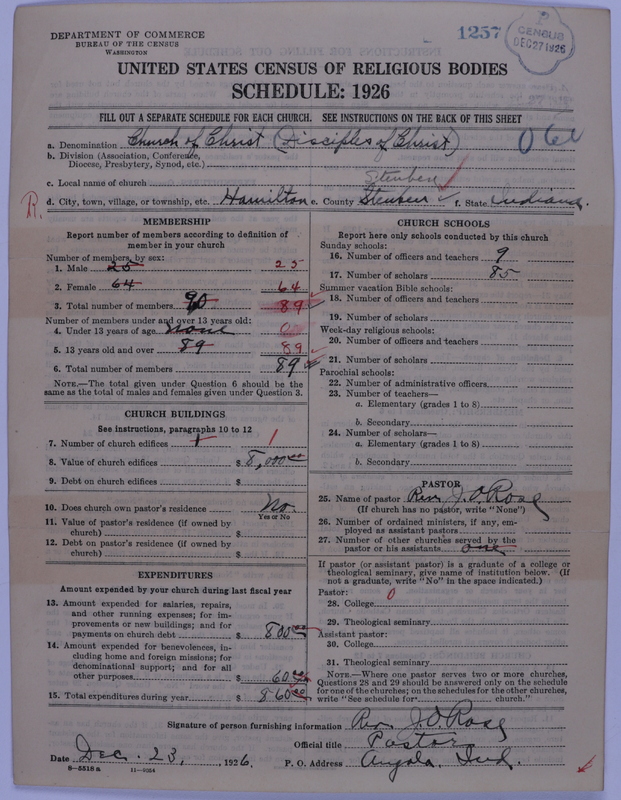 DEPARTMENT OF COMMERCE
BUREAU OF THE CENSUS
WASHINGTON
1257
CENSUS
DEC 27 1926
UNITED STATES CENSUS OF RELIGIOUS BODIES
SCHEDULE: 1926
FILL OUT A SEPARATE SCHEDULE FOR EACH CHURCH. SEE INSTRUCTIONS ON THE BACK OF THIS SHEET
a. Denomination Church of Christ (Disciples of Christ)
b. Division (Association, Conference, Diocese, Presbytery, Synod, etc.)
c. Local name of church
d. City, town, village, or township, etc. Hamilton e. County Steuben f. State Indiana.
R.
MEMBERSHIP
Report number of members according to definition of
member in your church
Number of members by sex:
1. Male 25 25
2. Female 64 64
3. Total number of members 90 89
Number of members under and over 13 years old:
4. Under 13 years of age none 0
5. 13 years old and over 89 89
6. Total number of members 89
NOTE.—The total given under Question 6 should be the
same as the total of males and females given under Question 3.
CHURCH BUILDINGS
See instructions, paragraphs 10 to 12
7. Number of church edifices 1 1
8. Value of church edifices $ 8,000.00
9. Debt on church edifices $
10. Does church own pastor's residence No.
Yes or No
11. Value of pastor's residence (if owned by
church) $
12. Debt on pastor's residence (if owned by
church) $
EXPENDITURES
Amount expended by your church during last fiscal year
13. Amount expended for salaries, repairs,
and other running expenses; for im-
provements or new buildings; and for
payments on church debt $ 800.00
14. Amount expended for benevolences, in-
cluding home and foreign missions; for
denominational support; and for all
other purposes $ 60.00
15. Total expenditures during year $ 860.00
CHURCH SCHOOLS
Report here only schools conducted by this church
Sunday schools:
16. Number of officers and teachers 9
17. Number of scholars 85
Summer vacation Bible schools:
18. Number of officers and teachers
19. Number of scholars
Week-day religious schools:
20. Number of officers and teachers
21. Number of scholars
Parochial schools:
22. Number of administrative officers
23. Number of teachers—
a. Elementary (grades 1 to 8)
b. Secondary
24. Number of scholars—
a. Elementary (grades 1 to 8)
b. Secondary
PASTOR
25. Name of pastor Rev. J. O. Rose
(If church has no pastor, write "None")
26. Number of ordained ministers, if any, em-
ployed as assistant pastors
27. Number of other churches served by the
pastor or his assistants one
If pastor (or assistant pastor) is a graduate of a college or
theological seminary, give name of institution below. (If
not a graduate, write "No" in the space indicated.)
Pastor: 0
28. College
29. Theological seminary
Assistant pastor:
30. College
31. Theological seminary
NOTE.—Where one pastor serves two or more churches,
Questions 28 and 29 should be answered only on the schedule
for one of the churches; on the schedules for the other churches,
write "See schedule for church."
Signature of person furnishing information Rev. J. O. Rose
Official title Pastor
Date Dec. 23, 1926. P. O. Address Angola, Ind.
8—5518 a 11—9054